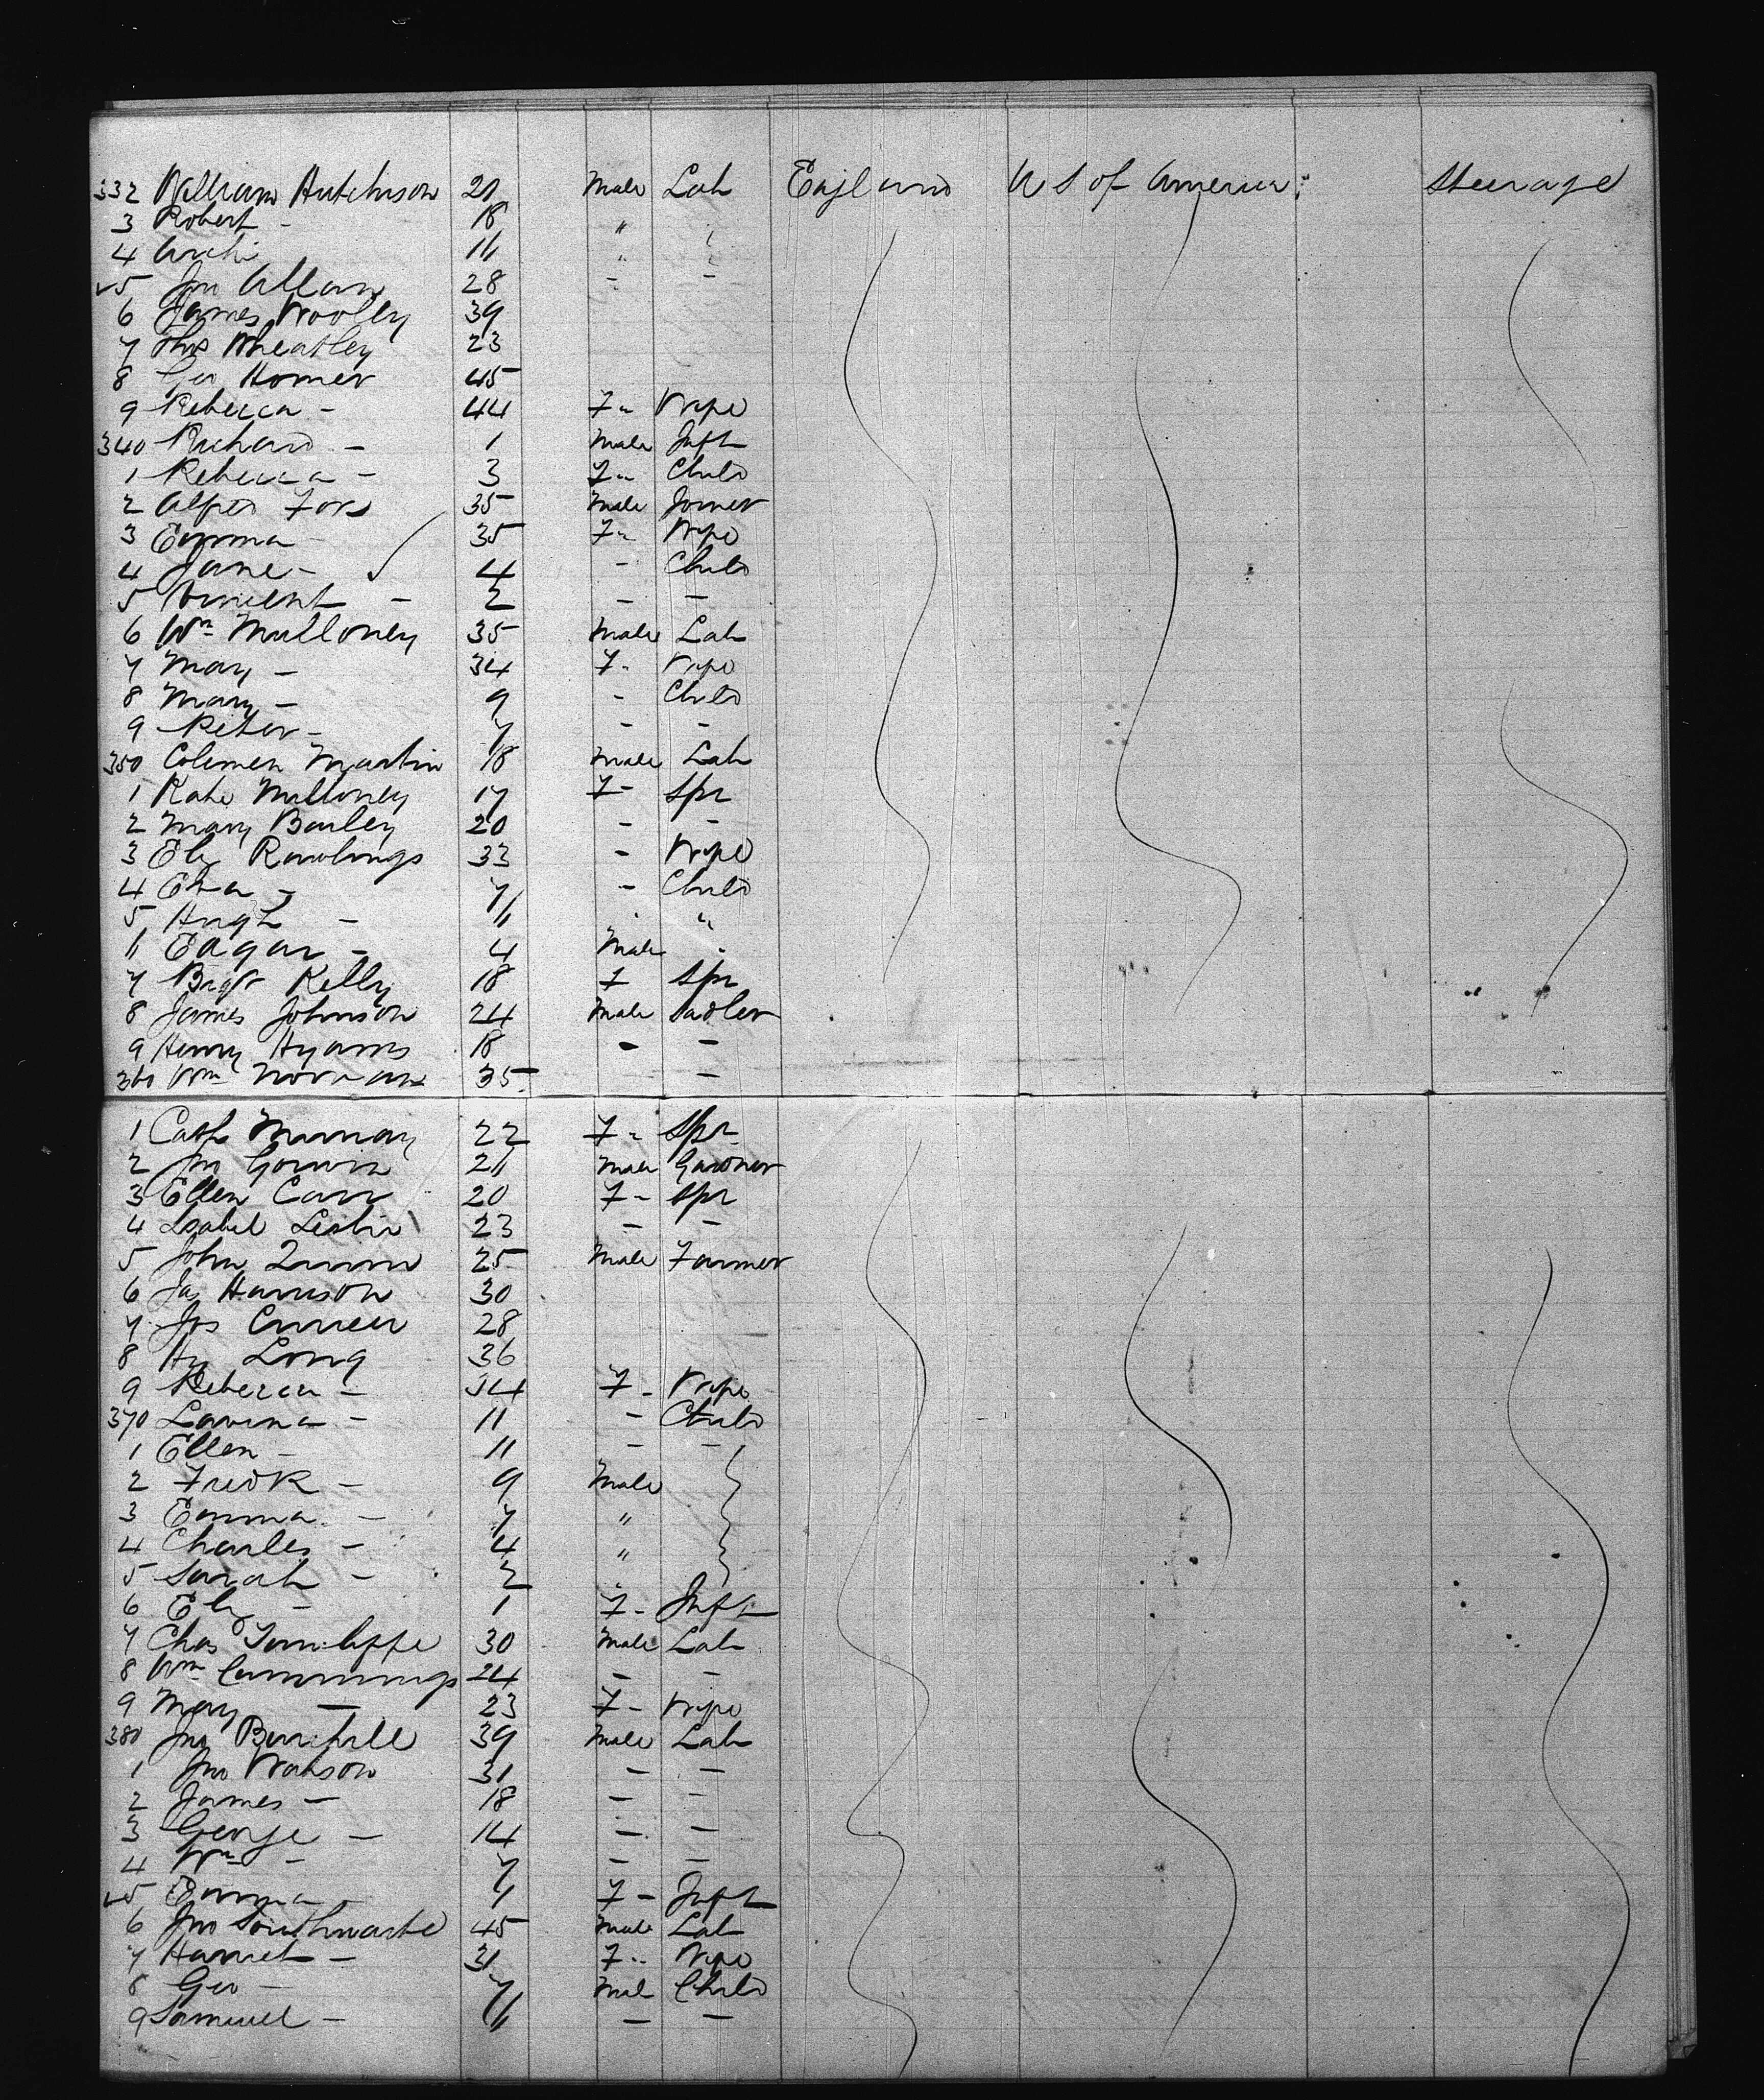 332 William Hutchison 21 Male Lab England U S of America Steerage
3 Robert - 18 "
4 Archi 16 "
5 Jno Allan 28 - -
6 James Woolley 39
7 Thos Wheatley 23
8 Geo Homer 45
9 Rebecca - 44 F " Wife
340 Richard - 1 Male Inft
1 Rebecca - 3 F " Child
2 Alfred Fox 35 Male Joiner
3 Emma - 35 F " Wife
4 Jane - 4 - Child
5 Vincent - 2 - -
6 Wm Mulloney 35 Male Lab
7 Mary - 34 F " Wife
8 Mary - 9 - Child
9 Peter - 7 - -
350 Colemen Martin 18 Male Lab
1 Kate Mulloney 17 F - Spr
2 Mary Bailey 20 - -
3 Eliz Rawlings 33 - Wife
4 Eva - 7 - Child
5 Hugh - 6 " "
6 Edgar - 4 Male "
7 Bigt Kelly 18 F Spr
8 James Johnson 24 Male Sadler
9 Henry Hyams 18 - -
360 Wm Norman 35 -
1 Cath Murray 22 F " Spr
2 Jno Gorwin 21 Male Gardner
3 Ellen Carr 20 F - Spr
4 Isabel Leslie 23 - -
5 John Quinn 25 Male Farmer
6 Jas Harrison 30
7 Jos 28
8 Hy Long 36
9 Rebecca - 34 F - Wife
370 Lavina - 11 - Child
1 Ellen - 11 - -
2 Fredk - 9 Male
3 Emma - 7 "
4 Charles - 4 "
5 Sarah - 2
6 Eliz - 1 F - Inft
7 Chas Tunnicliffe 30 Male Lab
8 Wm Cummings 24 - -
9 Mary - 23 F - Wife
380 Jno 39 Male Lab
1 Jno Watson 31 - -
2 James - 18 - -
3 George - 14 - -
4 Wm - 7 - -
5 Emma - 1 F - Inft
6 Jno Southwarte 45 Male Lab
7 Harriet - 31 F " Wife
8 Geo - 7 Male Child
9 Samuel - 6 - -